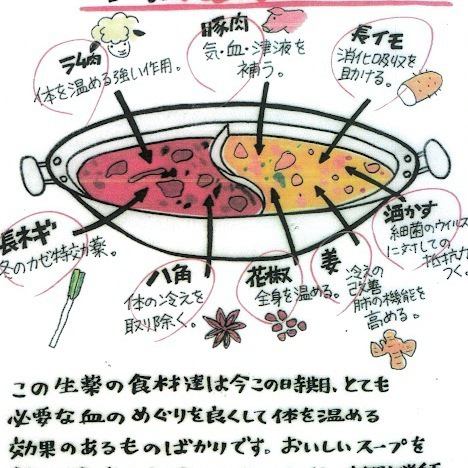 ラム肉
体を温める強い作用。
豚肉
気・血・津液を
補う。
長イモ
消化吸収を
助ける。
長ネギ
冬のカゼ特効薬。
八角
体の冷えを
取り除く。
花椒
全身を温める。
姜
冷えの
改善
肺の機能を
高める。
酒かす
細菌やウイルス
に対しての
抵抗力
つく。
この生薬の食材達は今この時期、とても
必要な血のめぐりを良くして体を温める
効果のあるものばかりです。おいしいスープを